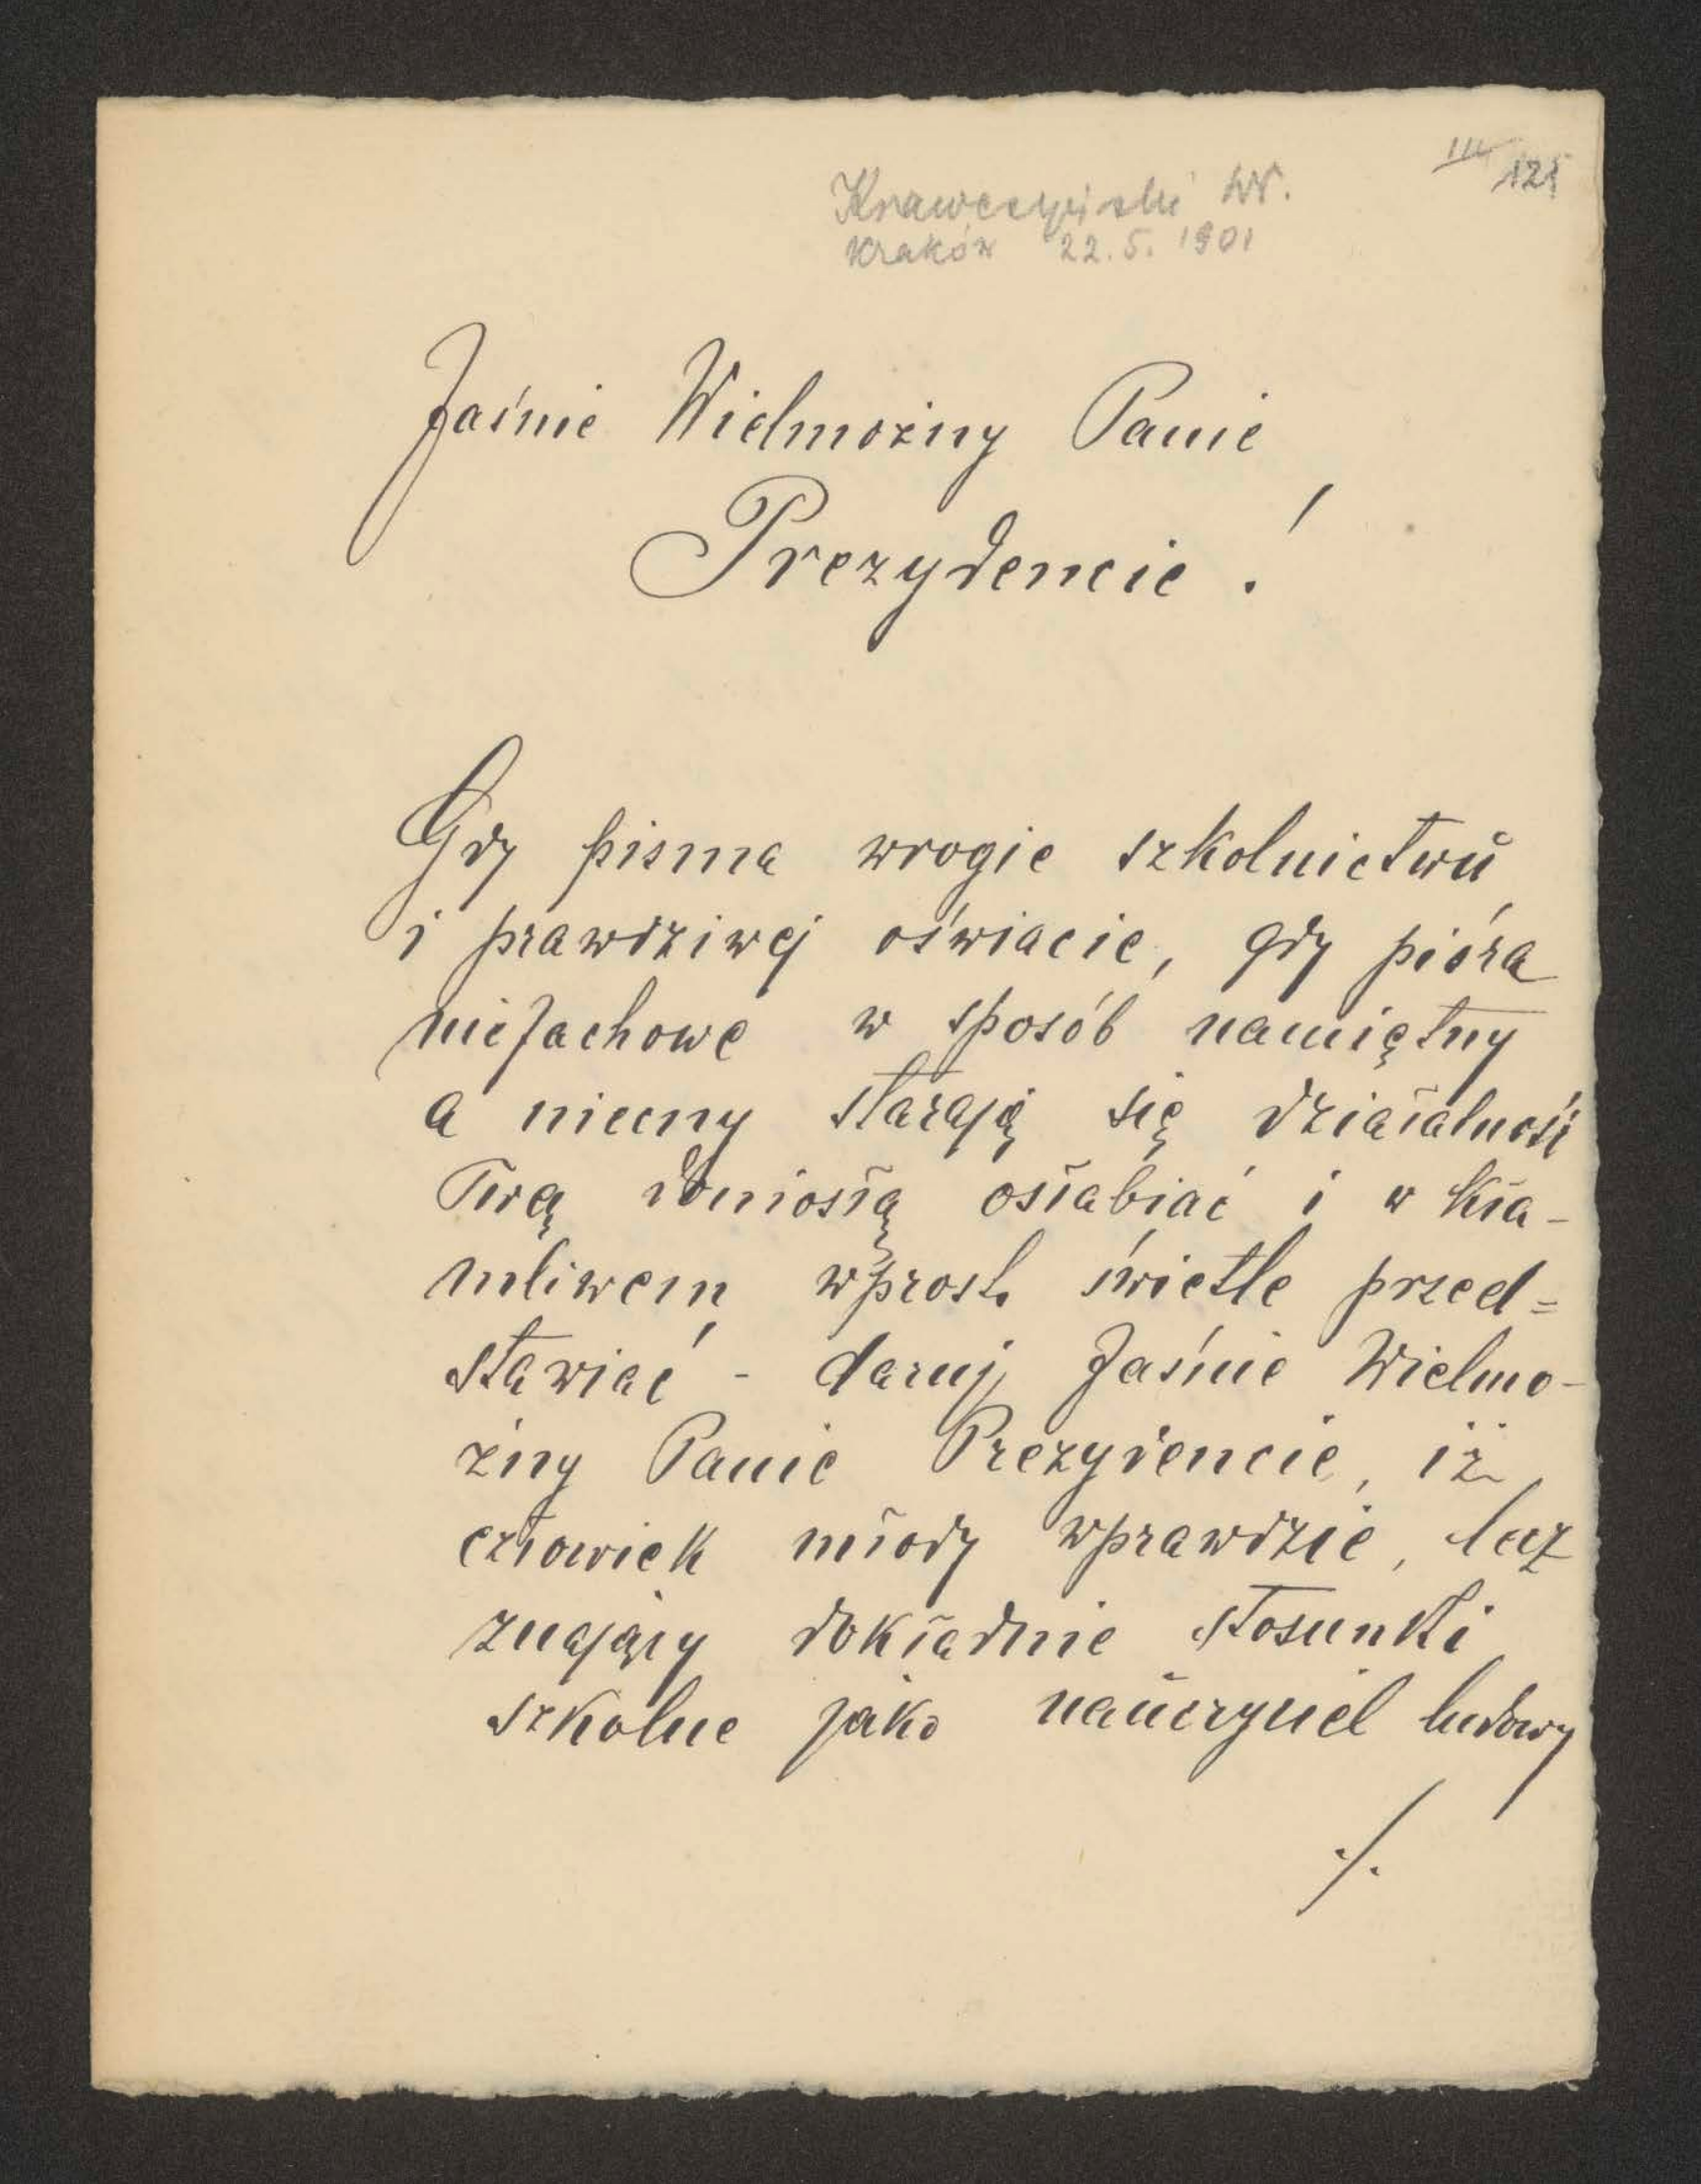 121
Krawczyński W.
Kraków 22.5.1901
Jaśnie Wielmożny Panie
Prezydencie!
Gdy pisma wrogie szkolnictwu
i prawdziwej oświacie, gdy pióra
niefachowe w sposób namiętny
a niecny starają się działalność
Twą doniosłą osłabiać i w kła-
mliwem wprost świetle przed=
stawiać - daruj Jaśnie Wielmo-
żny Panie Prezydencie, iż
człowiek młody wprawdzie, lecz
znający dokładnie stosunki
szkolne jako nauczyciel ludowy
./.